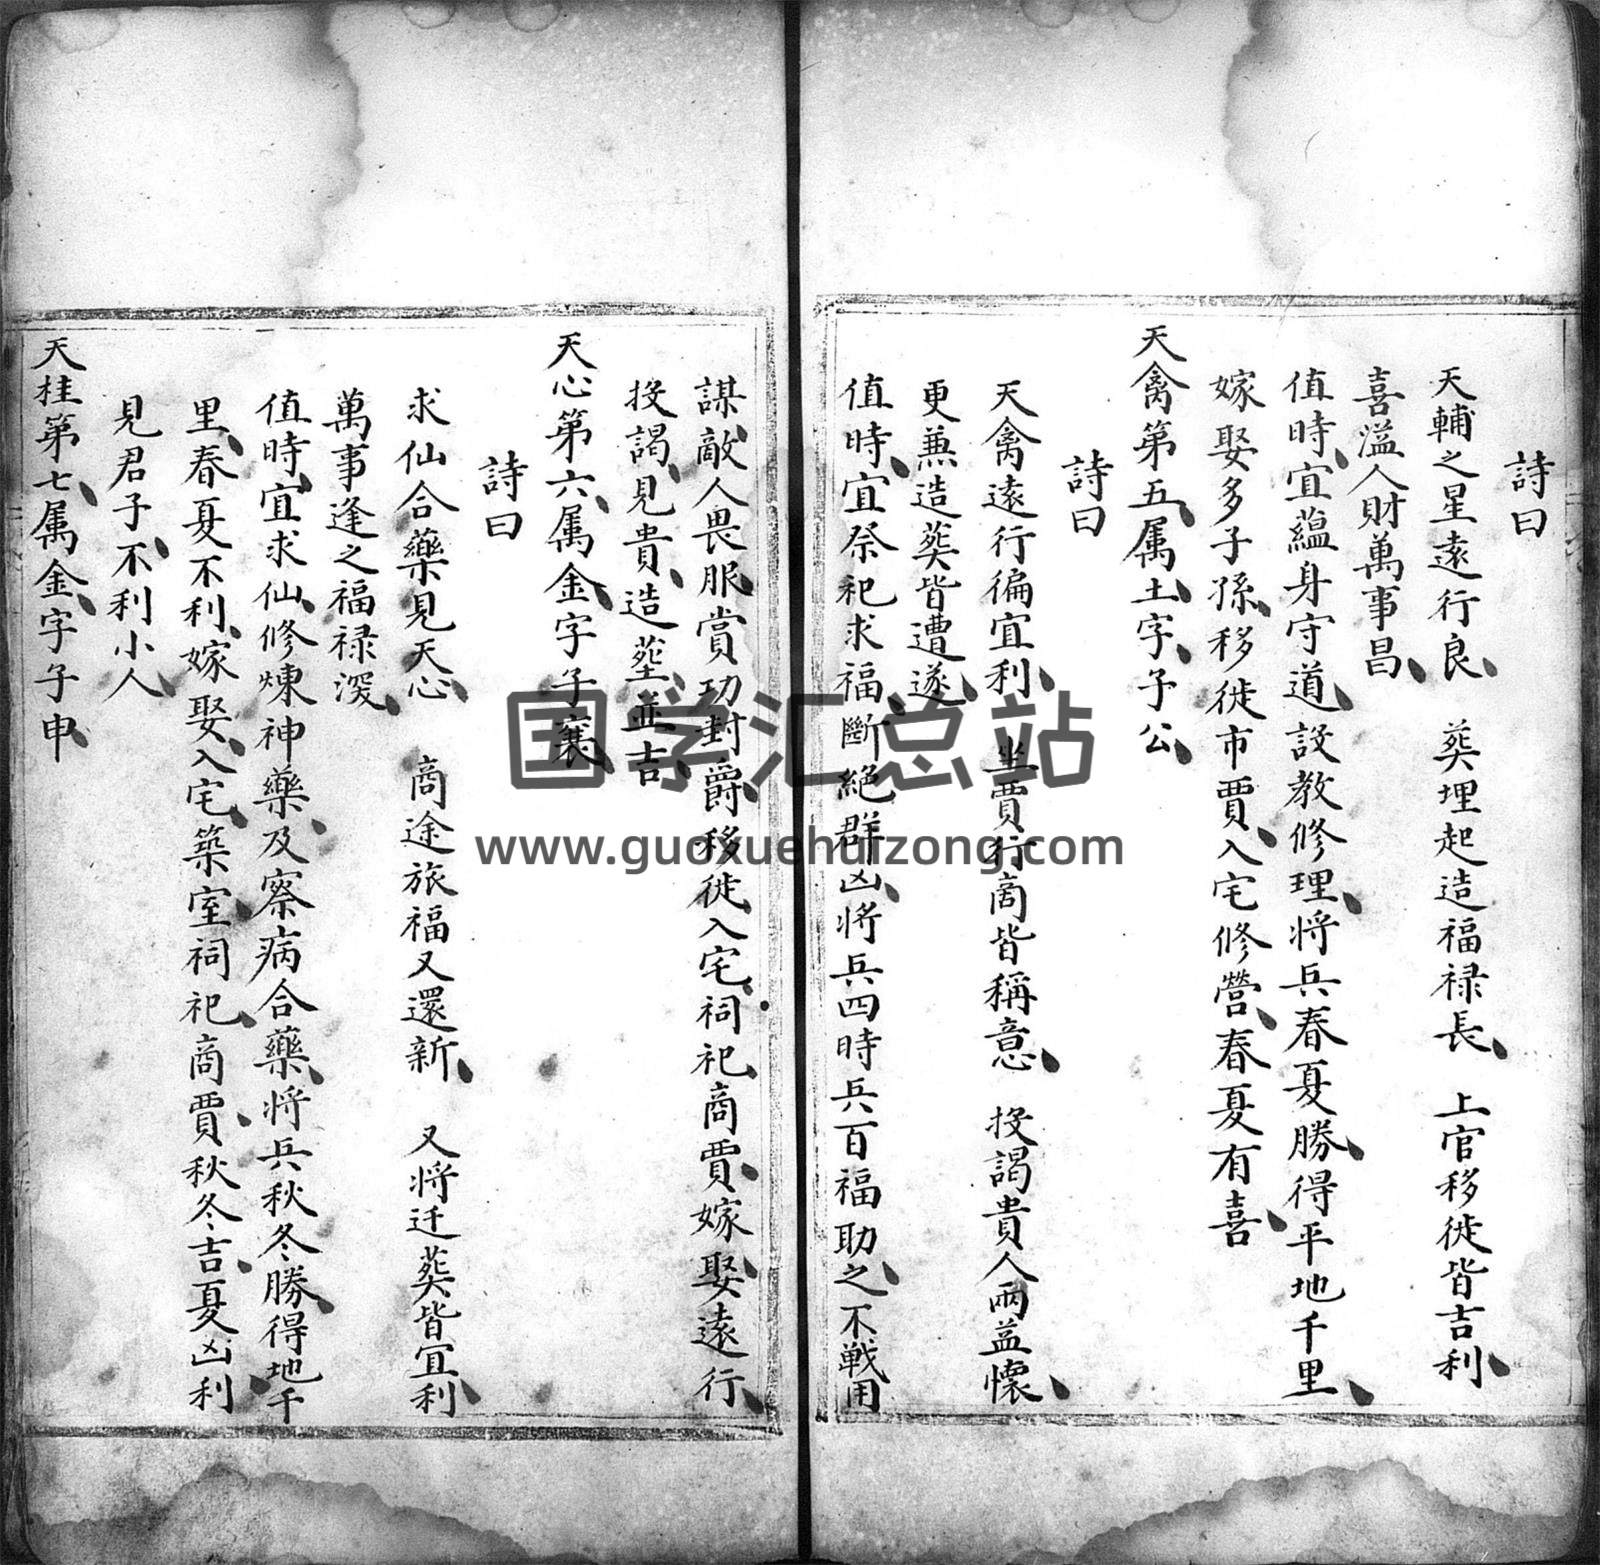 詩曰
天輔之星遠行良　葬埋起造福禄長　上官移徙皆吉利
喜溢人財萬事昌
值時宜蘊身守道設教修理將兵春夏勝得平地千里
嫁娶多子孫移徙市賈入宅修營春夏有喜
天禽第五属土字子公
詩曰
天禽遠行徧宜利　坐賈行商皆稱意　投謁貴人兩益懷
更兼造葬皆遭遂
值時宜祭祀求福斷絕群凶將兵四時兵百福助之不戦用
謀敵人畏服賞功封爵移徙入宅祠祀商賈嫁娶遠行
投謁見貴造塟並吉
天心第六属金字子襄
詩曰
求仙合藥見天心　商途旅福又還新　又將迁葬皆宜利
萬事逢之福禄深
值時宜求仙修煉神藥及察病合藥將兵秋冬勝得地千
里春夏不利嫁娶入宅築室祠祀商賈秋冬吉夏凶利
見君子不利小人
天柱第七属金字子申
国学汇总站
www.guoxuehuizong.com